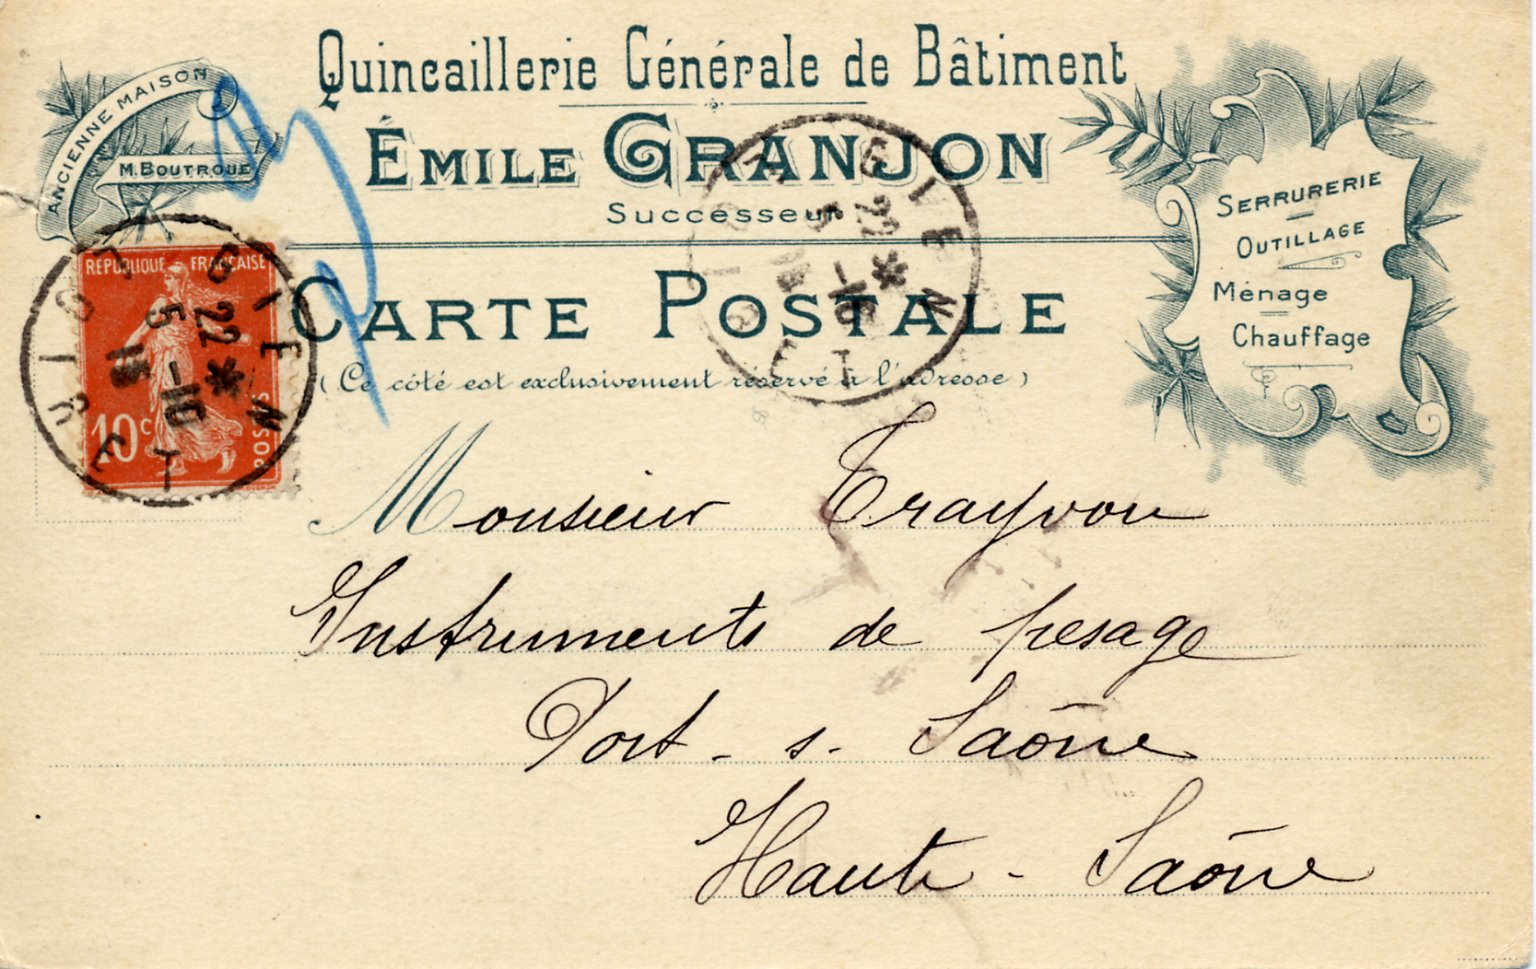 Quincaillerie Générale de Bâtiment
ANCIENNE MAISON
M. BOUTROUE
ÉMILE GRANJON
Successeur
SERRURERIE
OUTILLAGE
Ménage
Chauffage
CARTE POSTALE
(Ce côté est exclusivement réservé à l'adresse)
REPUBLIQUE FRANÇAISE
10c
POSTES
GIEN
LOIRET
22 *
5 - 10
GIEN
LOIRET
22 *
5 - 10
Monsieur Trayvou
Instruments de pesage
Port - s - Saône
Haute - Saône